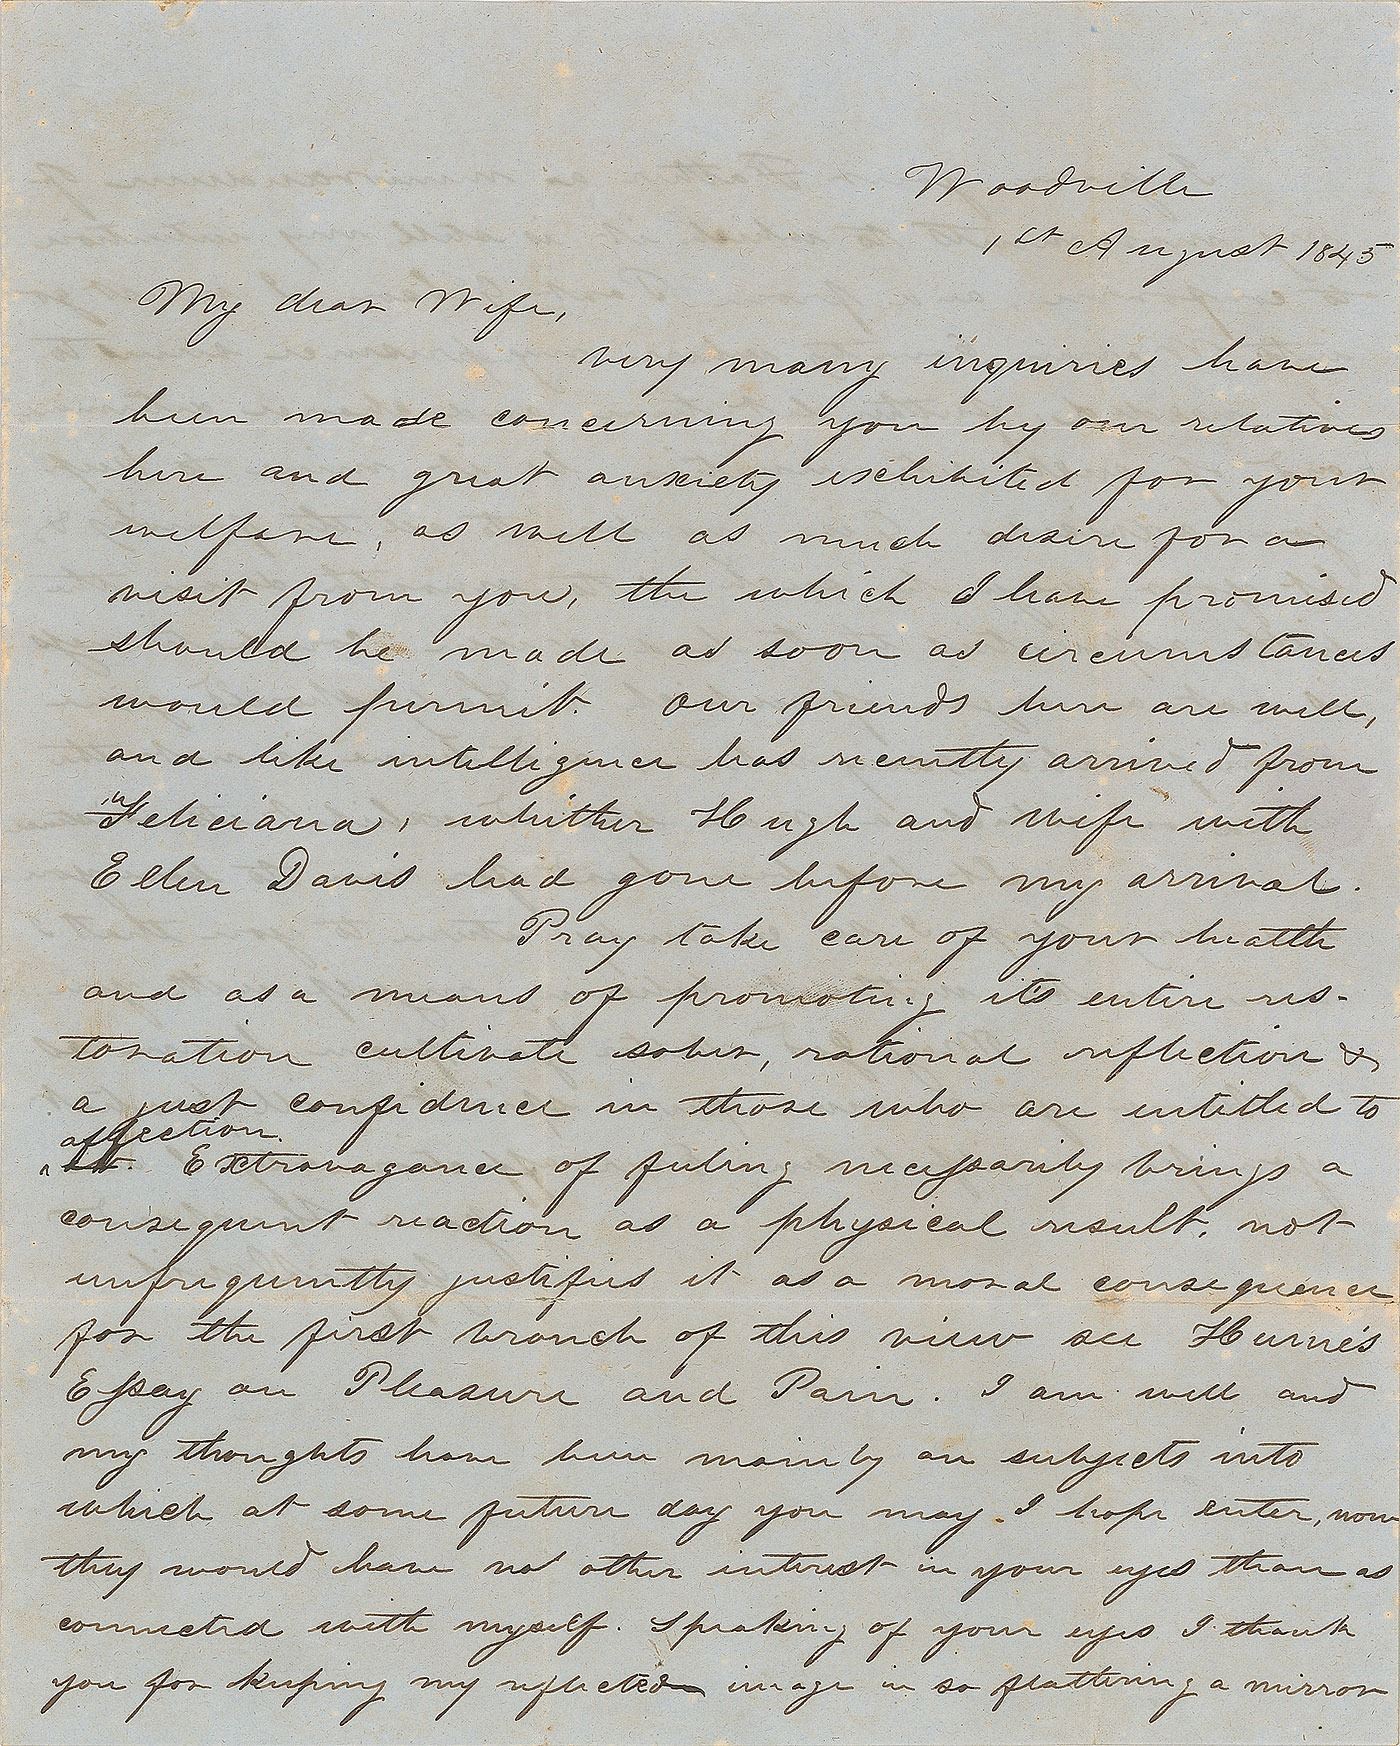 Woodville
1st August 1845
My dear Wife,
very many inquiries have
been made concerning you by our relatives
here and great anxiety exhibited for your
welfare, as well as much desire for a
visit from you, the which I have promised
should be made as soon as circumstances
would permit. Our friends here are well,
and like intelligence has recently arrived from
in Feliciana, whither Hugh and wife with
Ellen Davis had gone before my arrival.
Pray take care of your health
and as a means of promoting it's entire res-
toration cultivate sober, rational reflection &
a just confidence in those who are entitled to
affection.
Extravagance of feeling necessarily brings a
consequent reaction as a physical result, not
unfrequently justifies it as a moral consequence
for the first branch of this view see Hume's
Essay on Pleasure and Pain. I am well and
my thoughts have been mainly on subjects into
which at some future day you may I hope enter, now
they would have no other interest in your eyes than as
connected with myself. Speaking of your eyes I thank
you for keeping my reflected image in so flattering a mirror